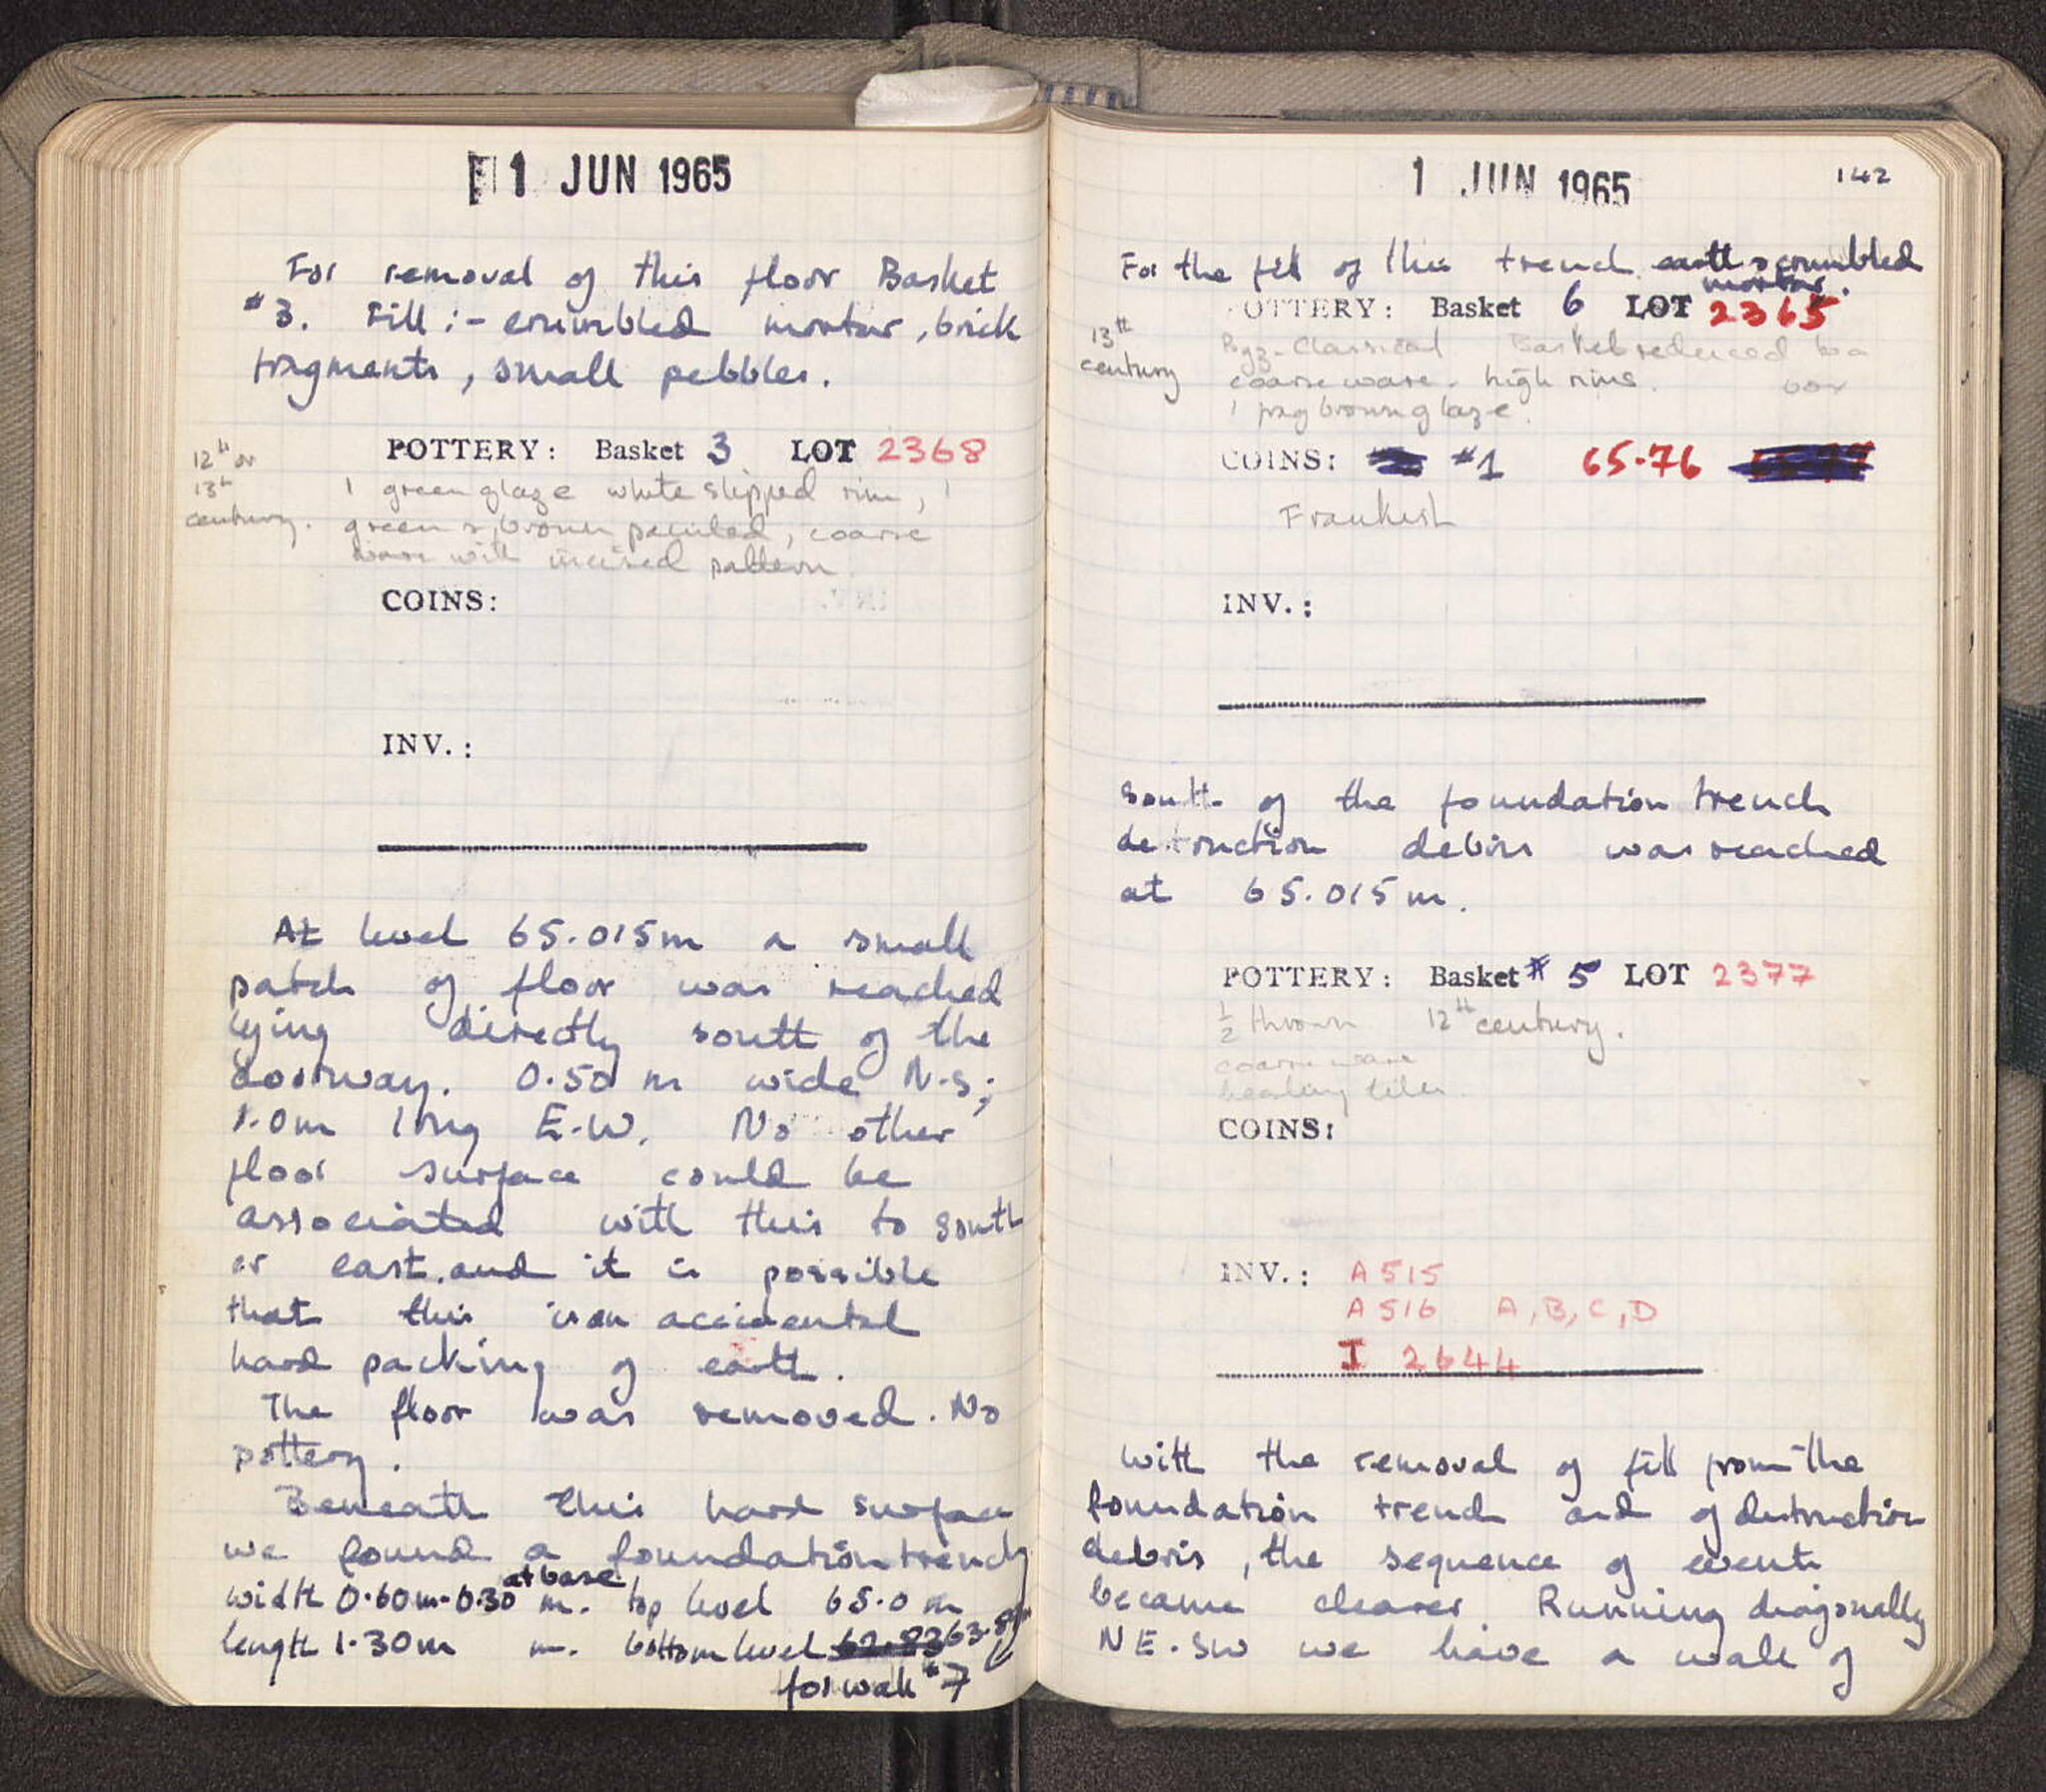 1 JUN 1965
For removal of this floor Basket
#3. Fill :- crumbled mortar, brick
fragments, small pebbles.
12th or
13th
century.
POTTERY: Basket 3 LOT 2368
1 green glaze white slipped rim, 1
green & brown painted, coarse
ware with incised pattern
COINS:
INV.:
At level 65.015m a small
patch of floor was reached
lying directly south of the
doorway. 0.50 m wide N-S;
1.0m long E-W. No other
floor surface could be
associated with this to south
or east. and it is possible
that this is an accidental
hard packing of earth.
The floor was removed. No
pottery.
Beneath this hard surface
we found a foundation trench
width 0.60m-0.30 at base m. top level 65.0 m
length 1.30m m. bottom level 62.83 63.8
for wall #7
1 JUN 1965
142
For the fill of this trench earth & crumbled
mortar.
POTTERY: Basket 6 LOT 2365
13th
century
Byz-Classical Basket reduced to a
coarse ware - high rims. box
1 frag brown glaze.
COINS: #1 65-76
Frankish
INV.:
south of the foundation trench
destruction debris was reached
at 65.015m.
POTTERY: Basket # 5 LOT 2377
1/2 thrown 12th century.
coarse ware
tiles
COINS:
INV.: A 515
A 516 A, B, C, D
I 2644
With the removal of fill from the
foundation trench and of destruction
debris, the sequence of events
became clearer. Running diagonally
NE-SW we have a wall of